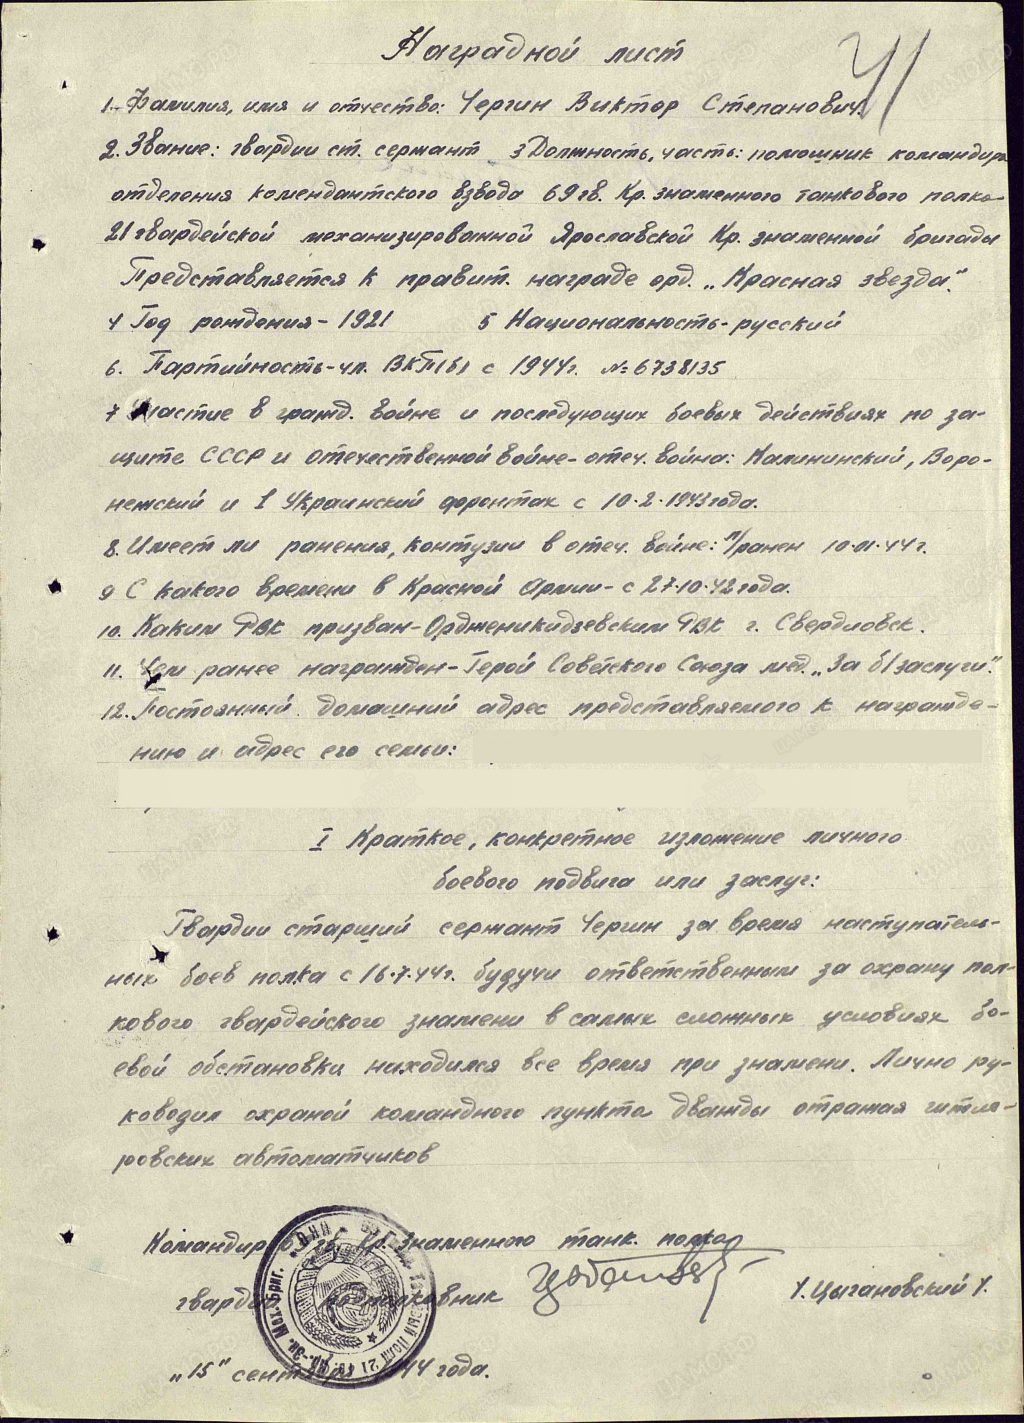 Наградной лист
41
1. Фамилия, имя и отчество: Чергин Виктор Степанович.
2. Звание: гвардии ст. сержант 3 Должность, часть: помощник командира
отделения комендантского взвода 69 гв. Кр. знаменного танкового полка
21 гвардейской механизированной Ярославской Кр. знаменной бригады
Представляется к правит. награде орд. „Красная звезда".
4 Год рождения - 1921 5 Национальность - русский
6. Партийность - чл. ВКП(б) с 1944г. № 6738135
7 Участие в гражд. войне и последующих боевых действиях по за-
щите СССР и отечественной войне - отеч. война: Калининский, Воро-
нежский и I Украинский фронтах с 10.2.1943 года.
8. Имеет ли ранения, контузии в отеч. войне: л/ранен 10.01.44г.
9 С какого времени в Красной Армии - с 27.10.42 года.
10. Каким РВК призван - Орджоникидзевским РВК г. Свердловск.
11. Чем ранее награжден - Герой Советского Союза мед. „За б/заслуги".
12. Постоянный домашний адрес представляемого к награжде-
нию и адрес его семьи:
I Краткое, конкретное изложение личного
боевого подвига или заслуг:
Гвардии старший сержант Чергин за время наступатель-
ных боев полка с 16.7.44г. будучи ответственным за охрану пол-
кового гвардейского знамени в самых сложных условиях бо-
евой обстановки находился все время при знамени. Лично ру-
ководил охраной командного пункта дважды отражая гитле-
ровских автоматчиков
Командир 69 гв. Кр. Знаменного танк. полка
гвардии подполковник /. Цыгановский /.
„15" сентября 44 года.